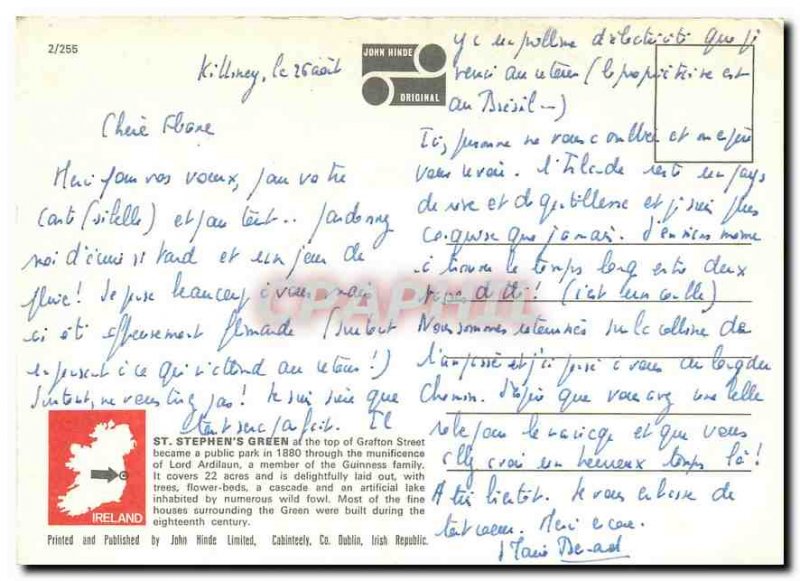 2/255
JOHN HINDE
ORIGINAL
Killiney, le 26 août
Chère
Merci pour vos voeux, pour votre
carte (si belle) et pour tout.. pardonnez
moi d'écrire si tard et un jour de
pluie! Je pense beaucoup à vous mais
ai été affreusement flemarde (surtout
en pensant à ce qui m'attend au retour!)
Surtout, ne vous inq pas! Je suis sûre que
tout sera parfait. Il
y a un problème d'électricité que je
verrai au retour (le propriétaire est
au Brésil --)
Ici, personne ne vous a oubliée et on espère
vous revoir. L'Irlande reste un pays
de rêve et de gentillesse et je suis plus
conquise que jamais. J'en viens même
à trouver le temps long entre deux
! (c'est un comble)
Nous sommes retournés sur la colline de
et j'ai pensé à vous du long du
chemin. J'espère que vous avez une belle
robe pour le mariage et que vous
allez avoir un heureux temps là!
A très bientôt. Je vous embrasse de
tout coeur. Merci encore.
Marie
CPAPHIL
ST. STEPHEN'S GREEN at the top of Grafton Street
became a public park in 1880 through the munificence
of Lord Ardilaun, a member of the Guinness family.
It covers 22 acres and is delightfully laid out, with
trees, flower-beds, a cascade and an artificial lake
inhabited by numerous wild fowl. Most of the fine
houses surrounding the Green were built during the
eighteenth century.
IRELAND
Printed and Published by John Hinde Limited, Cabinteely, Co. Dublin, Irish Republic.